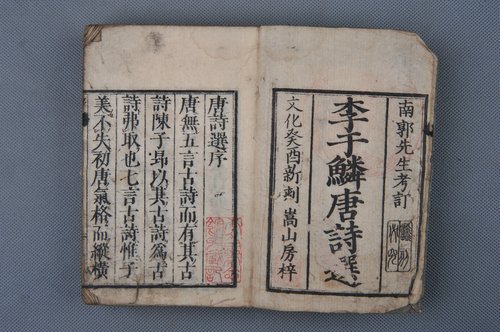 南郭先生考訂
李于鱗唐詩選
文化癸酉新刻 嵩山房梓
唐詩選序
唐無五言古詩而有其古
詩陳子昂以其古詩為古
詩弗取也七言古詩惟子
美不失初唐氣格而縱橫